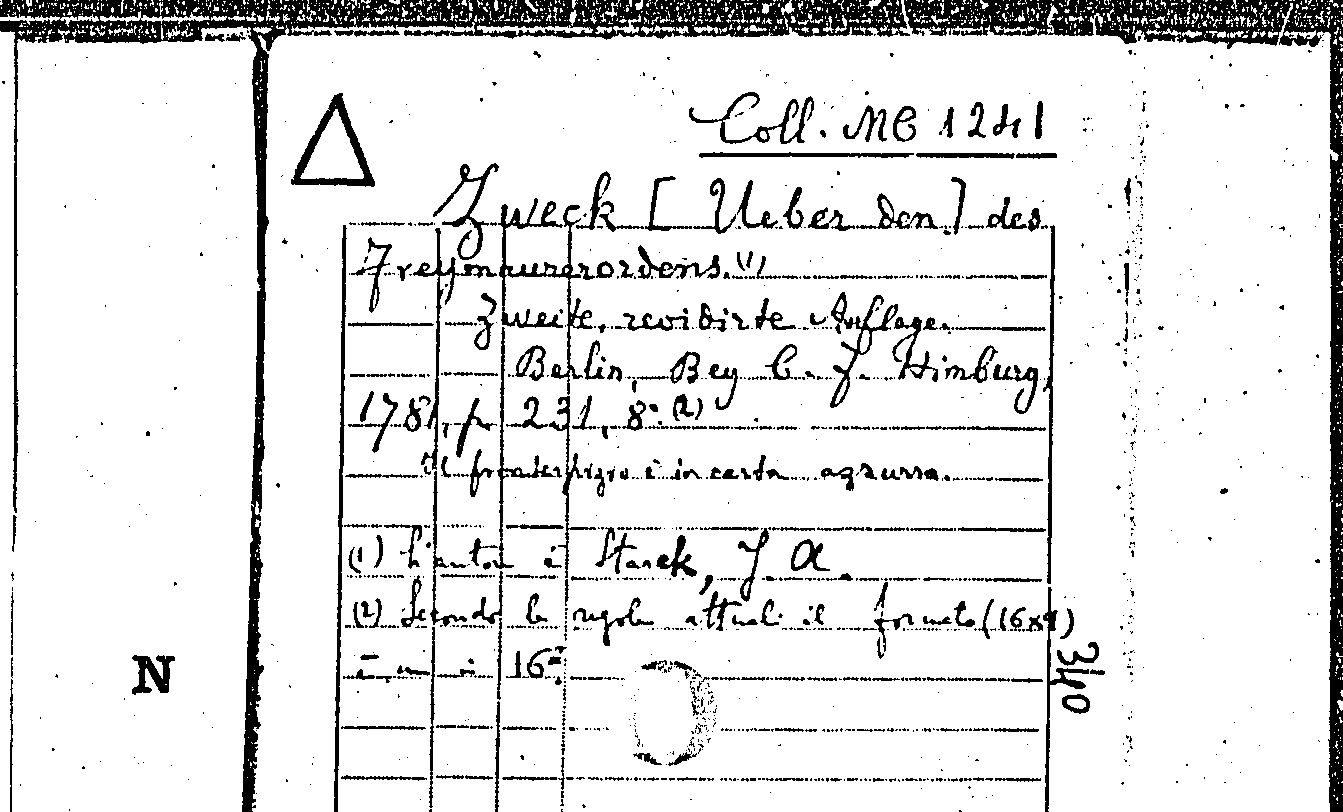 Coll. MC 1241
Zweck [Ueber den] des
Freymaurerordens. (1)
Zweite, revidirte Auflage.
Berlin, Bey C. F. Himburg,
1781, p. 231, 8°. (2)
Il frontespizio è in carta azzurra.
(1) L'autore è Starck, J. A.
(2) Secondo le regole attuali il formato (16x9)
è un in 16°.
340
N